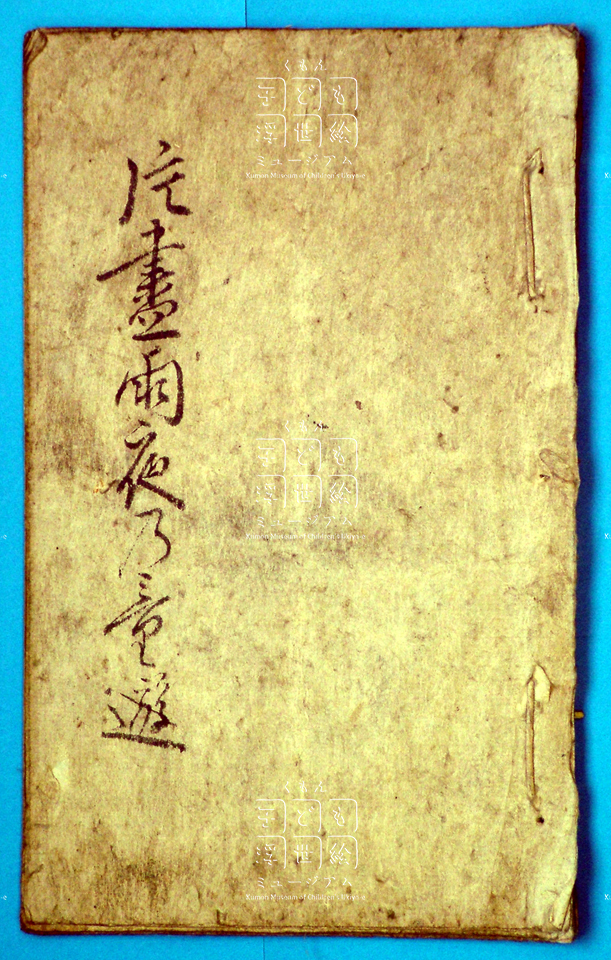 盡雨夜乃童遊
くもん
子ども
浮世絵
ミュージアム
Kumon Museum of Children's Ukiyo-e
くもん
子ども
浮世絵
ミュージアム
Kumon Museum of Children's Ukiyo-e
くもん
子ども
浮世絵
ミュージアム
Kumon Museum of Children's Ukiyo-e